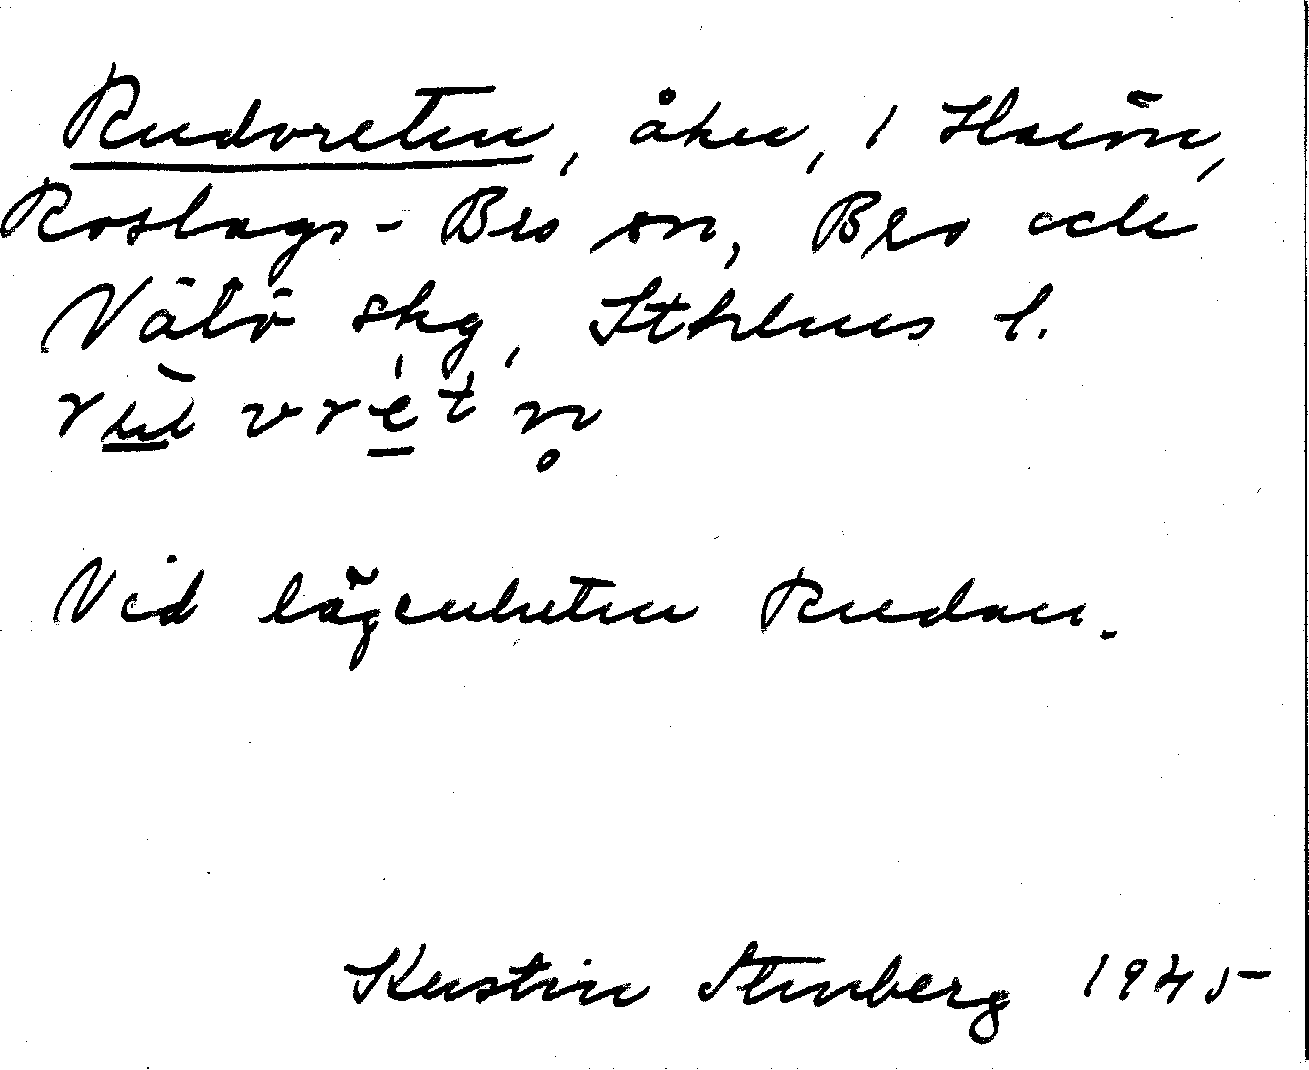 Rudvreten, åker, 1 Harön,
Roslags-Bro sn, Bro och
Vätö skg, Sthlms l.
vrét n̥
Vid lägenheten Rudan.
Kerstin Stenberg 1945